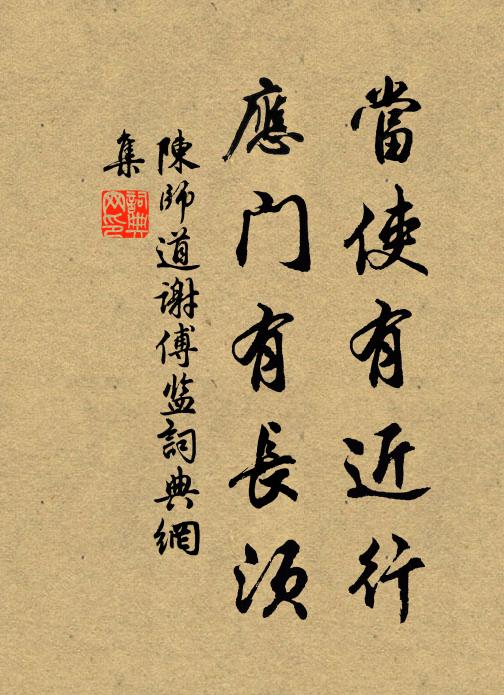 當使有近行
應門有長須
陳師道謝傅監詞典網
集
詞典
网印